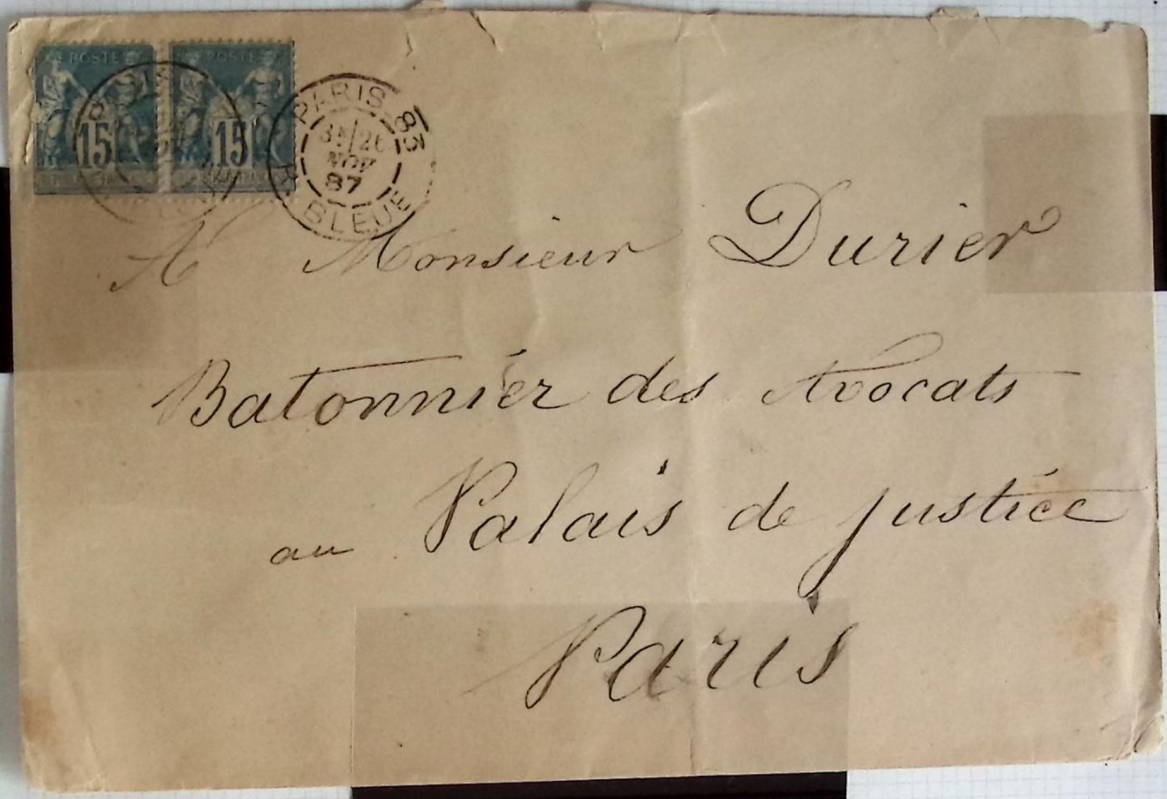 POSTE POSTE
15 15
PARIS 83
26
NOV
87
R. BLEUE
A Monsieur Durier
Batonnier des Avocats
au Palais de justice
Paris